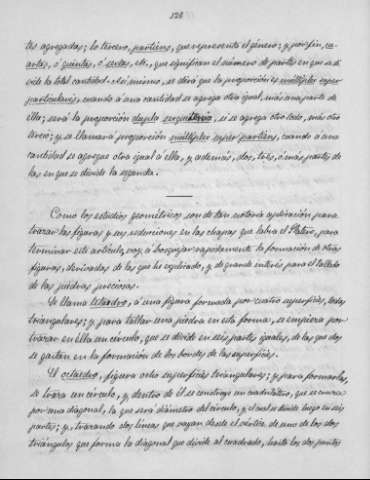 128
tes agregadas; lo tercero, partiens, que represente el género: y por fin, cu-
artas, ó quintas, ó sestas, etc., que significan el número de partes en que se di-
vide la total cantidad. Así mismo, se dirá que la proporción es multiplex super
particularis, cuando á una cantidad se agrega otra igual, más una parte de
ella; será la proporción dupla sesquitercia, si se agrega otro todo, más otro
tercio; y se llamará proporción multiplex super partiens, cuando a una
cantidad se agregue otra igual á ella, y además, dos, tres, ó más partes de
las en que se divide la segunda.
Como los estudios geométricos son de tan notoria aplicación para
trazar las figuras y sus reducciones en las chapas que labra el Platero, para
terminar este artículo, voy á bosquejar rapidamente la formación de otras
figuras, derivadas de las que he esplicado, y de grande interés para el tallado
de las piedras preciosas.
Se llama tetraedro, á una figura formada por cuatro superficies, todas
triangulares; y, para tallar una piedra en esta forma, se empieza por
trazar en ella un círculo, que se divide en seis partes iguales, de las que dos
se gastan en la formación de los bordes de las superficies.
El octaedro, figura ocho superficies triangulares; y para formarlos,
se traza un círculo, y dentro de él se construye un cuadrilátero, que se cruza
por una diagonal, la que será diámetro del círculo, y el cual se divide luego en seis
partes; y, trazando dos líneas que vayan desde el vértice de uno de los dos
triángulos que forma la diagonal que divide al cuadrado, hasta los dos puntos